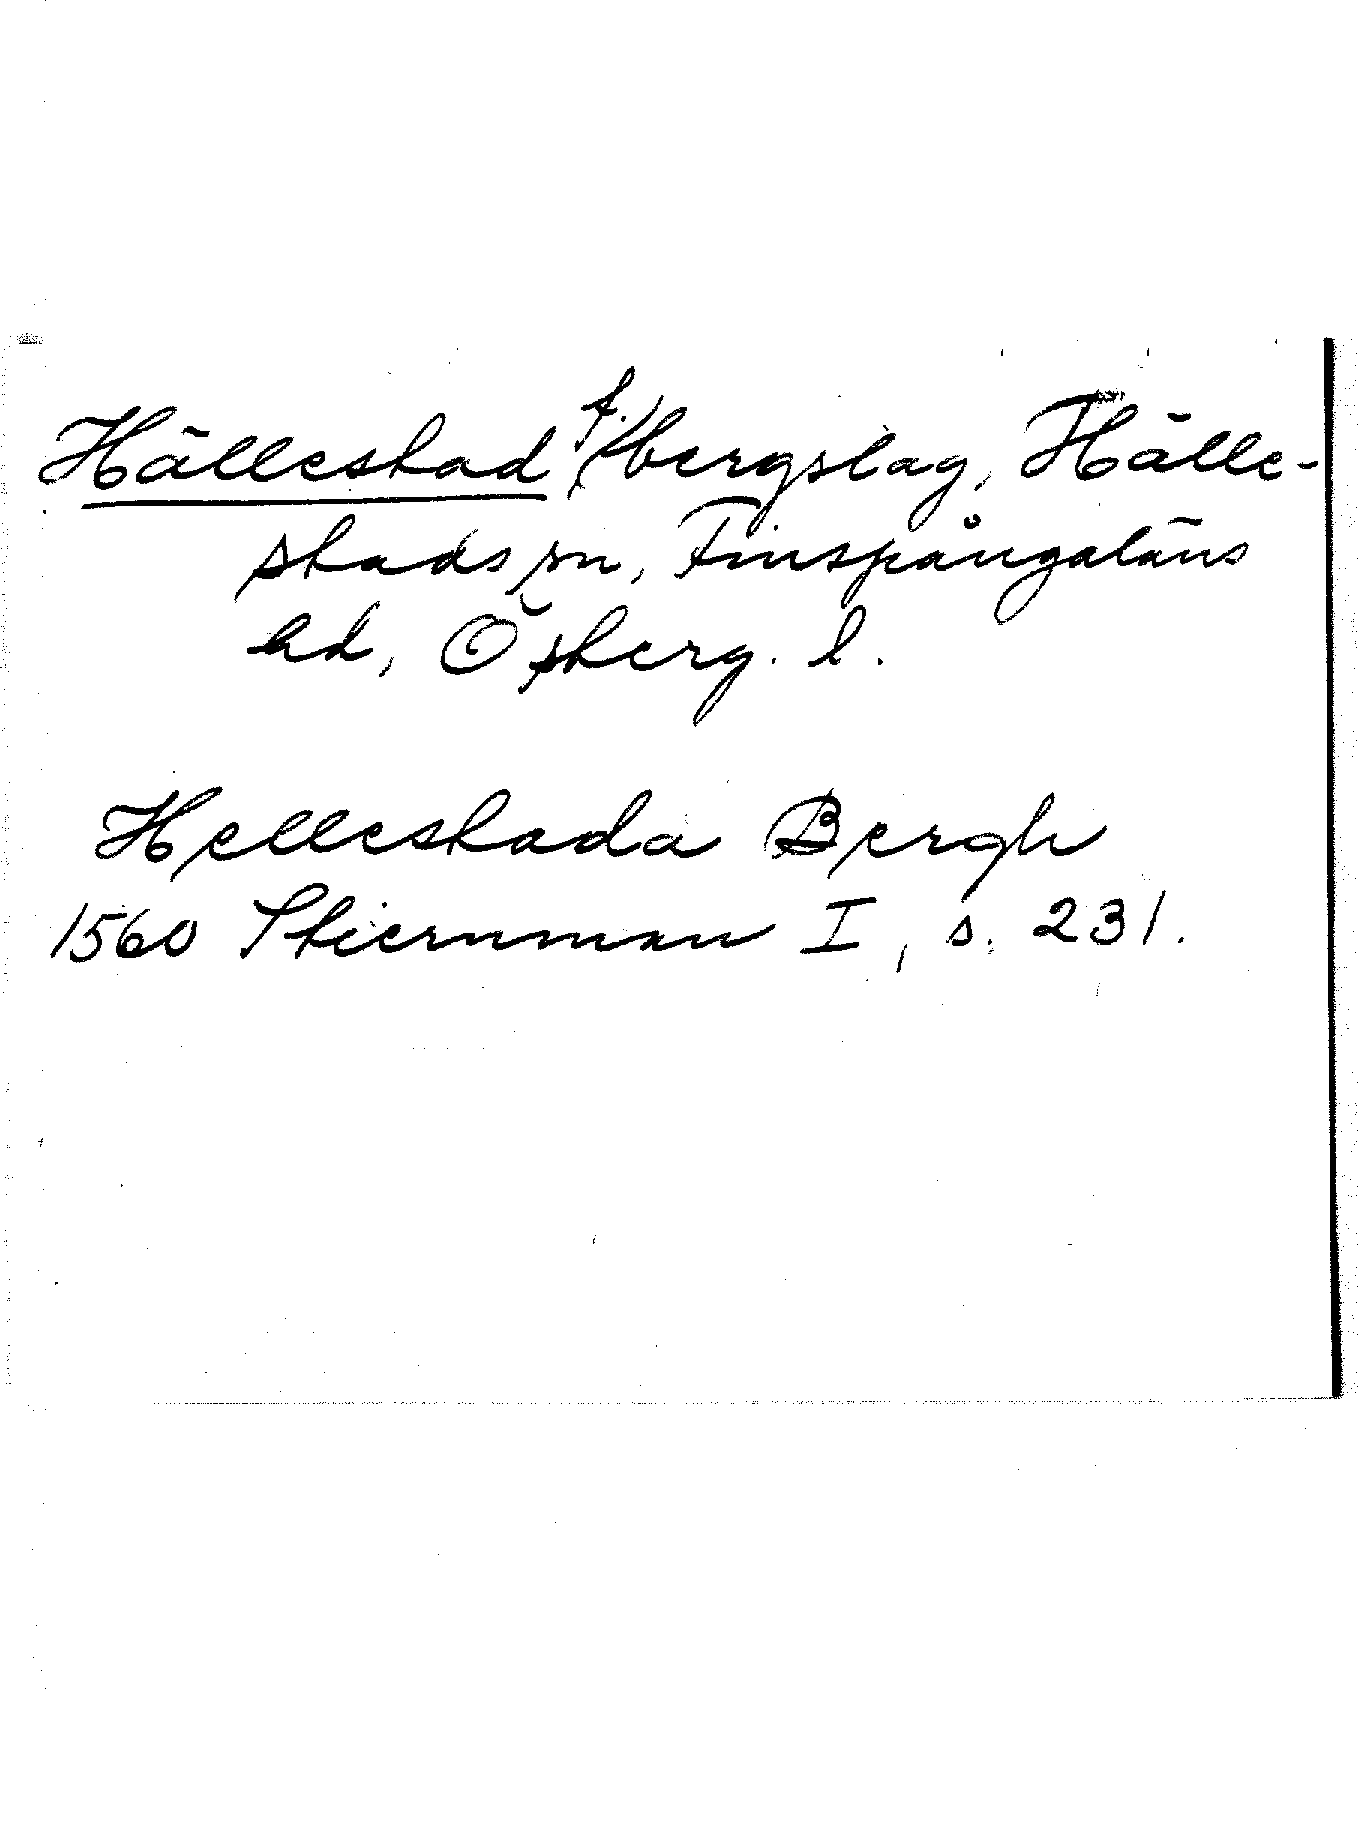 Hällestad f./bergslag, Hälle-
stads sn, Finspångaläns
hd, Österg. l.
Hellestada Bergh
1560 Stiernman I, s. 231.